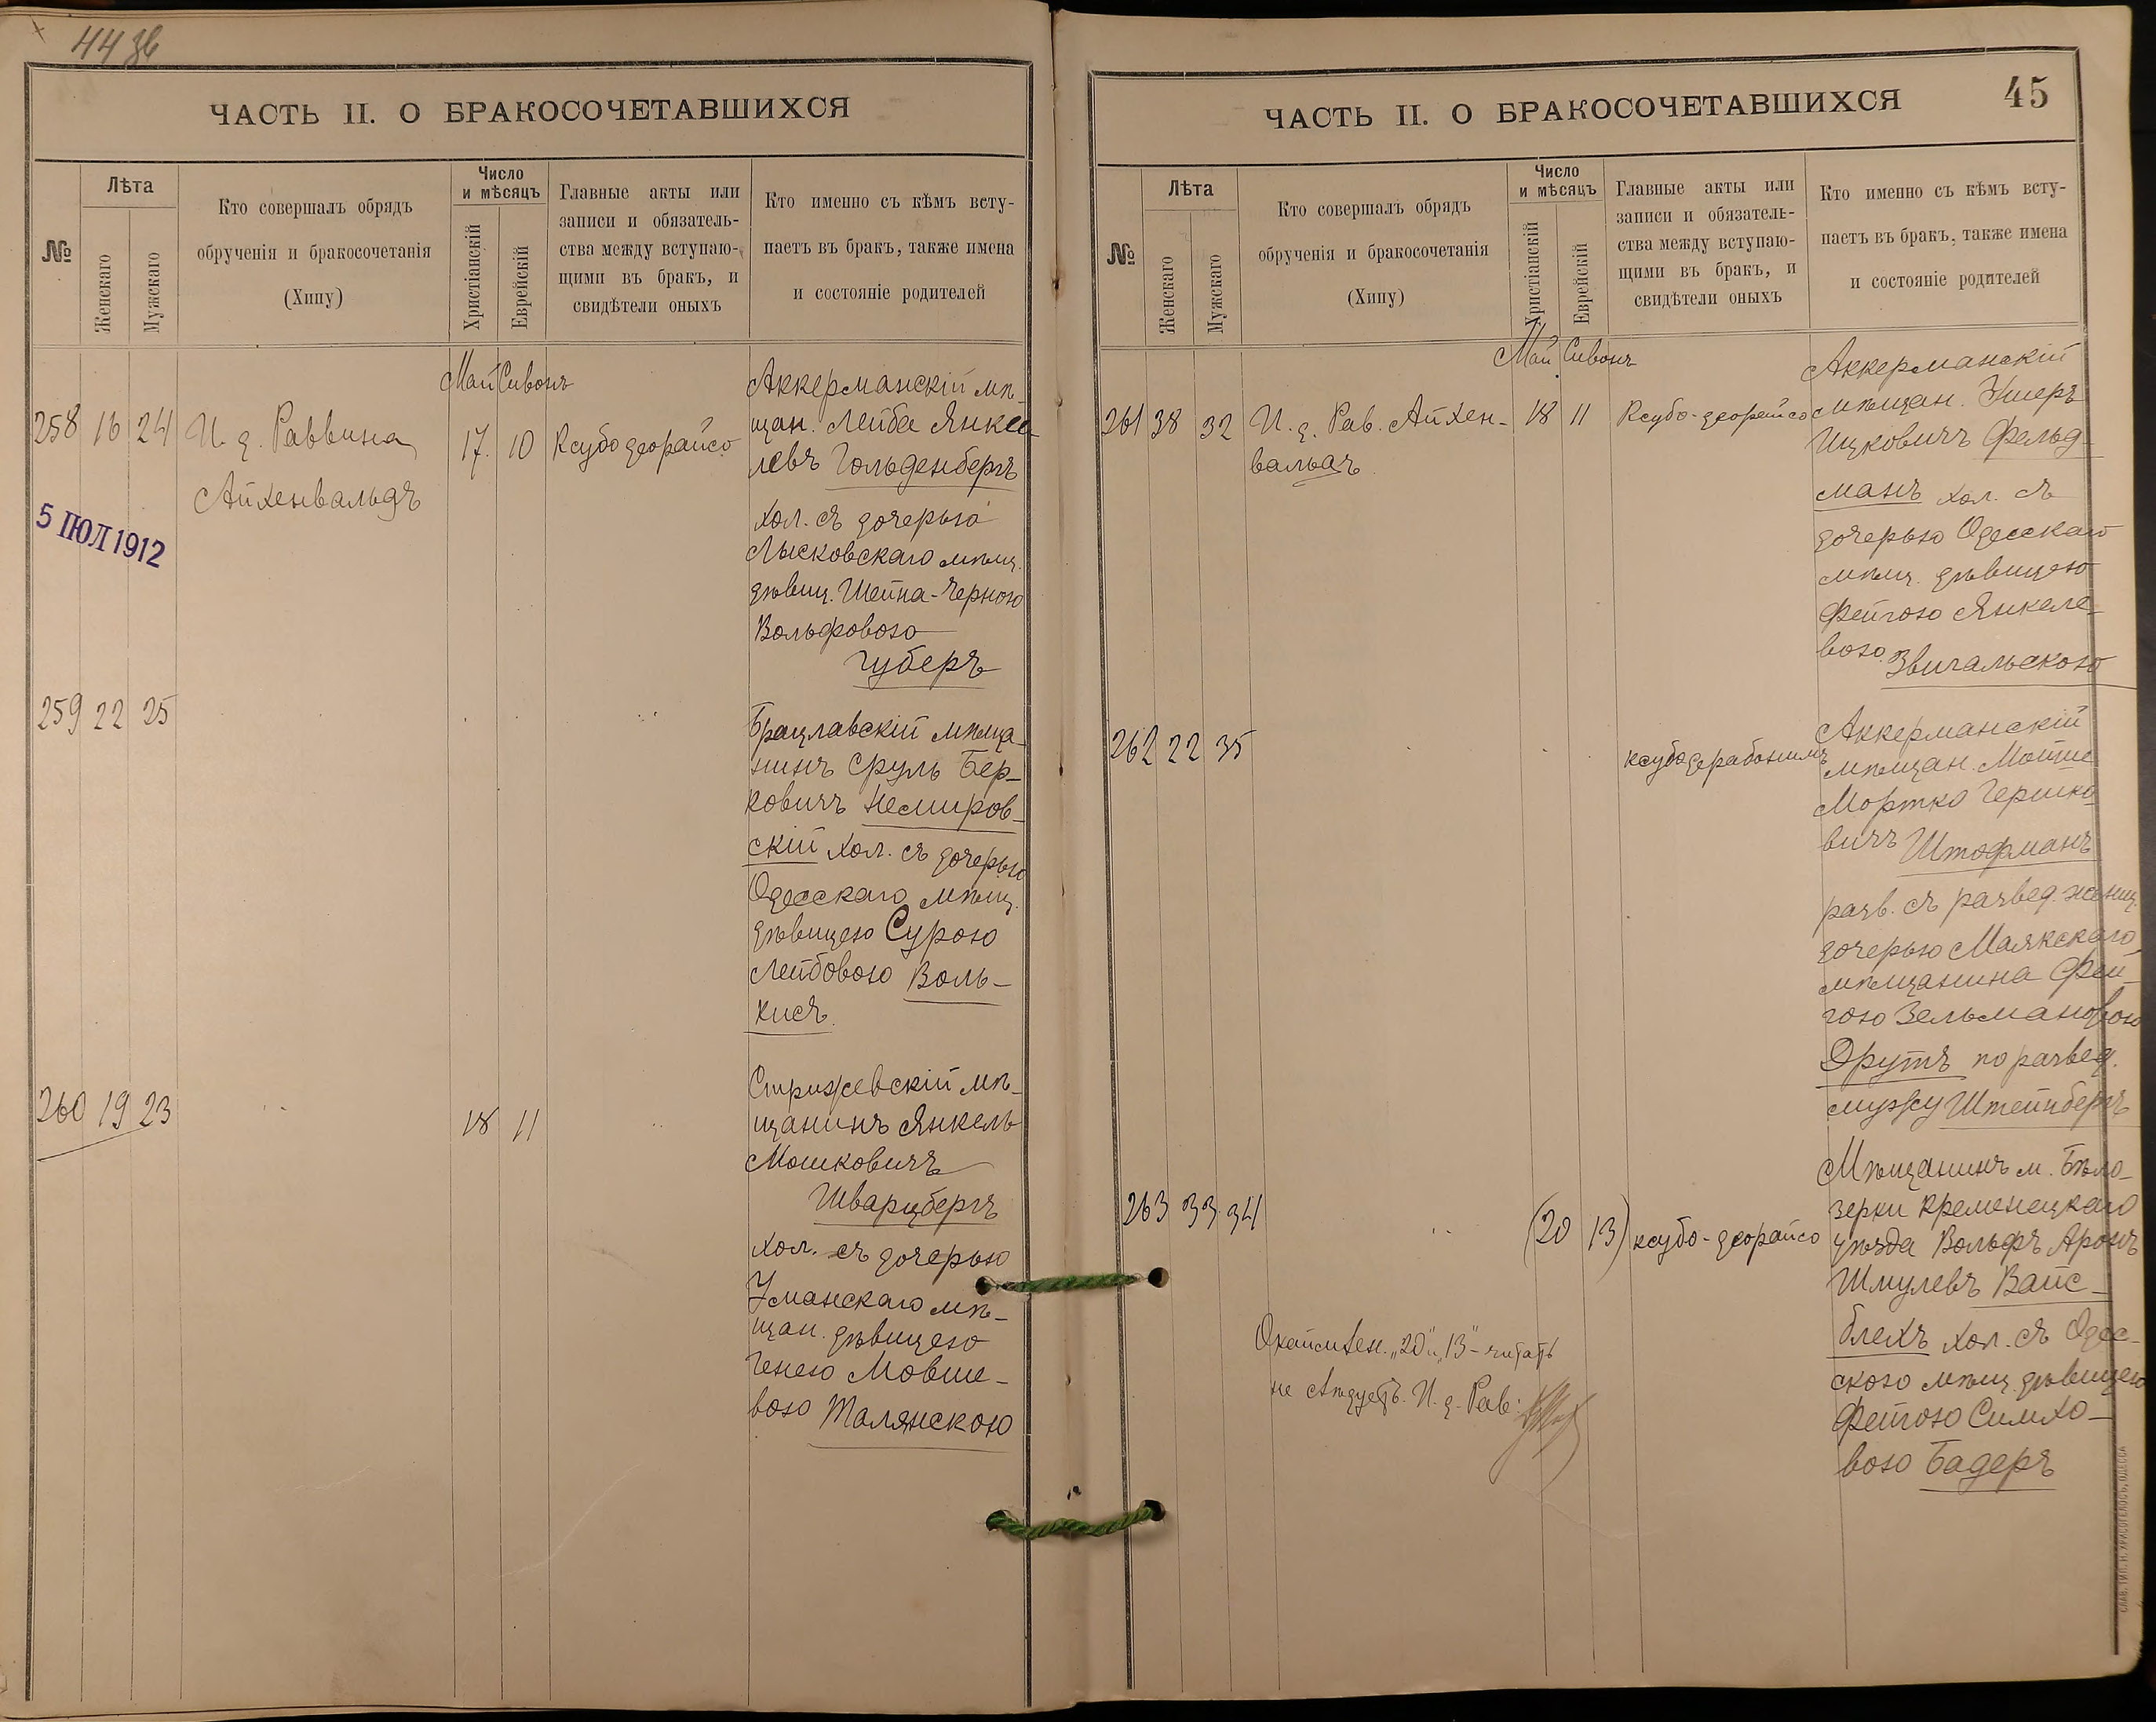 44 зв
ЧАСТЬ II. О БРАКОСОЧЕТАВШИХСЯ
№
Лѣта
Женскаго
Мужскаго
Кто совершалъ обрядъ
обрученія и бракосочетанія
(Хипу)
Число
и мѣсяцъ
Христіанскій
Еврейскій
Главные акты или
записи и обязатель-
ства между вступаю-
щими въ бракъ, и
свидѣтели оныхъ
Кто именно съ кѣмъ всту-
паетъ въ бракъ, также имена
и состояніе родителей
Май Сивонъ
258 16 24 И. д. Раввина
Айхенвальдъ
17. 10 Ксубо деорайсо
Аккерманскій мѣ-
щан. Лейба Янке-
левъ Гольденбергъ
хол. съ дочерью
Лысковскаго мѣщ.
дѣвиц. Шейна-Черною
Вольфовою
Губеръ
5 ІЮЛ 1912
259 22 25
Брацлавскій мѣща-
нинъ Сруль Бер-
ковичъ Немиров-
скій хол. съ дочерью
Одесскаго мѣщ.
дѣвицею Сурою
Лейбовою Воль-
кисъ.
260 19 23
18 11
Стрижевскій мѣ-
щанинъ Янкель
Мошковичъ
Шварцбергъ
хол. съ дочерью
Уманскаго мѣ-
щан. дѣвицею
Генею Мовше-
вою Талянскою
ЧАСТЬ II. О БРАКОСОЧЕТАВШИХСЯ
45
№
Лѣта
Женскаго
Мужскаго
Кто совершалъ обрядъ
обрученія и бракосочетанія
(Хипу)
Число
и мѣсяцъ
Христіанскій
Еврейскій
Главные акты или
записи и обязатель-
ства между вступаю-
щими въ бракъ, и
свидѣтели оныхъ
Кто именно съ кѣмъ всту-
паетъ въ бракъ, также имена
и состояніе родителей
Май Сивонъ
261 38 32 И. д. Рав. Айхен-
вальдъ
18 11 Ксубо-деорайсо
Аккерманскій
мѣщан. Ушеръ
Ицковичъ Фельд-
манъ хол. съ
дочерью Одесскаго
мѣщ. дѣвицею
Фейгою Янкеле-
вою Звигальскою
262 22 35
ксубо дерабонимъ
Аккерманскій
мѣщан. Мойше
Мортко Гершко-
вичъ Штофманъ
разв. съ развед. женщ.
дочерью Маякскаго
мѣщанина Фей-
гою Зельмановою
Друтъ по развед.
мужу Штейнбергъ
263 33 34
(20 13) ксубо-деорайсо
Мѣщанинъ м. Бѣло-
зерки Кременецкаго
уѣзда Вольфъ Аронъ
Шмулевъ Вайс-
блехъ хол. съ Одес-
скою мѣщ. дѣвицею
Фейгою Симхо-
вою Бадеръ
„20" и „13" – читать
не слѣдуетъ. И. д. Рав.
СЛАВ. ТИП. Н. ХРИСОГЕЛОСЪ, ОДЕССА